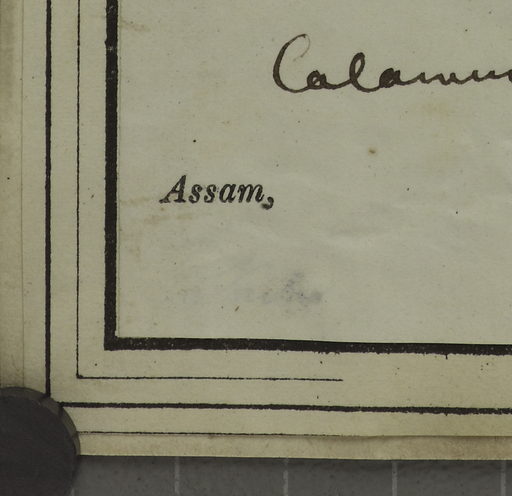 Calamu
Assam,